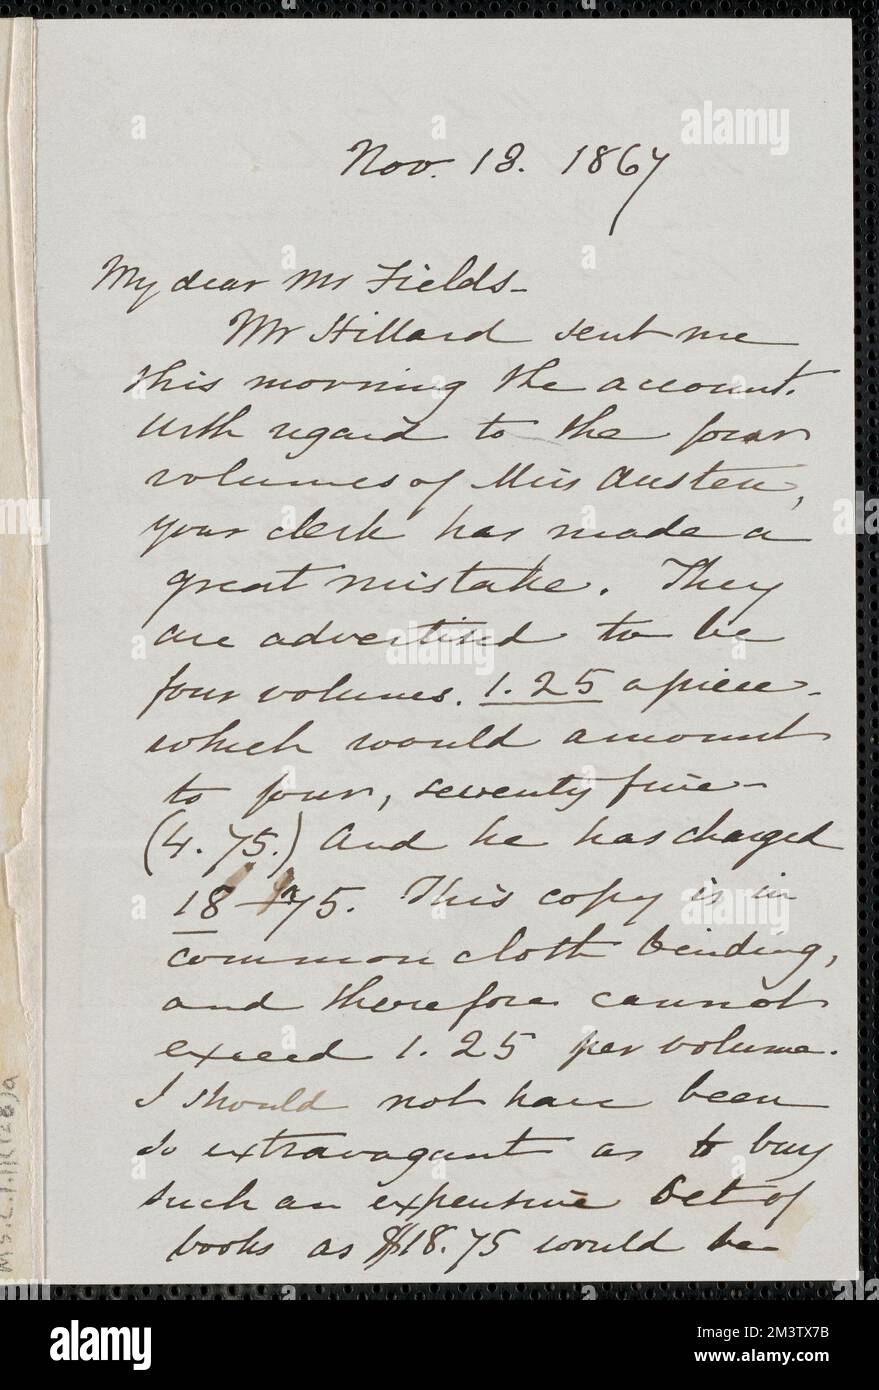 Nov. 13. 1867
My dear Mr Fields-
Mr Hillard sent me
this morning the account.
With regard to the four
volumes of Miss Austen,
your clerk has made a
great mistake. They
are advertised to be
four volumes. 1.25 apiece-
which would amount
to four, seventy five-
(4.75.) And he has charged
18-75. This copy is in
common cloth binding,
and therefore cannot
exceed 1.25 per volume.
I should not have been
so extravagant as to buy
such an expensive set of
books as $18.75 would be
alamy
Image ID: 2M3TX7B
www.alamy.com